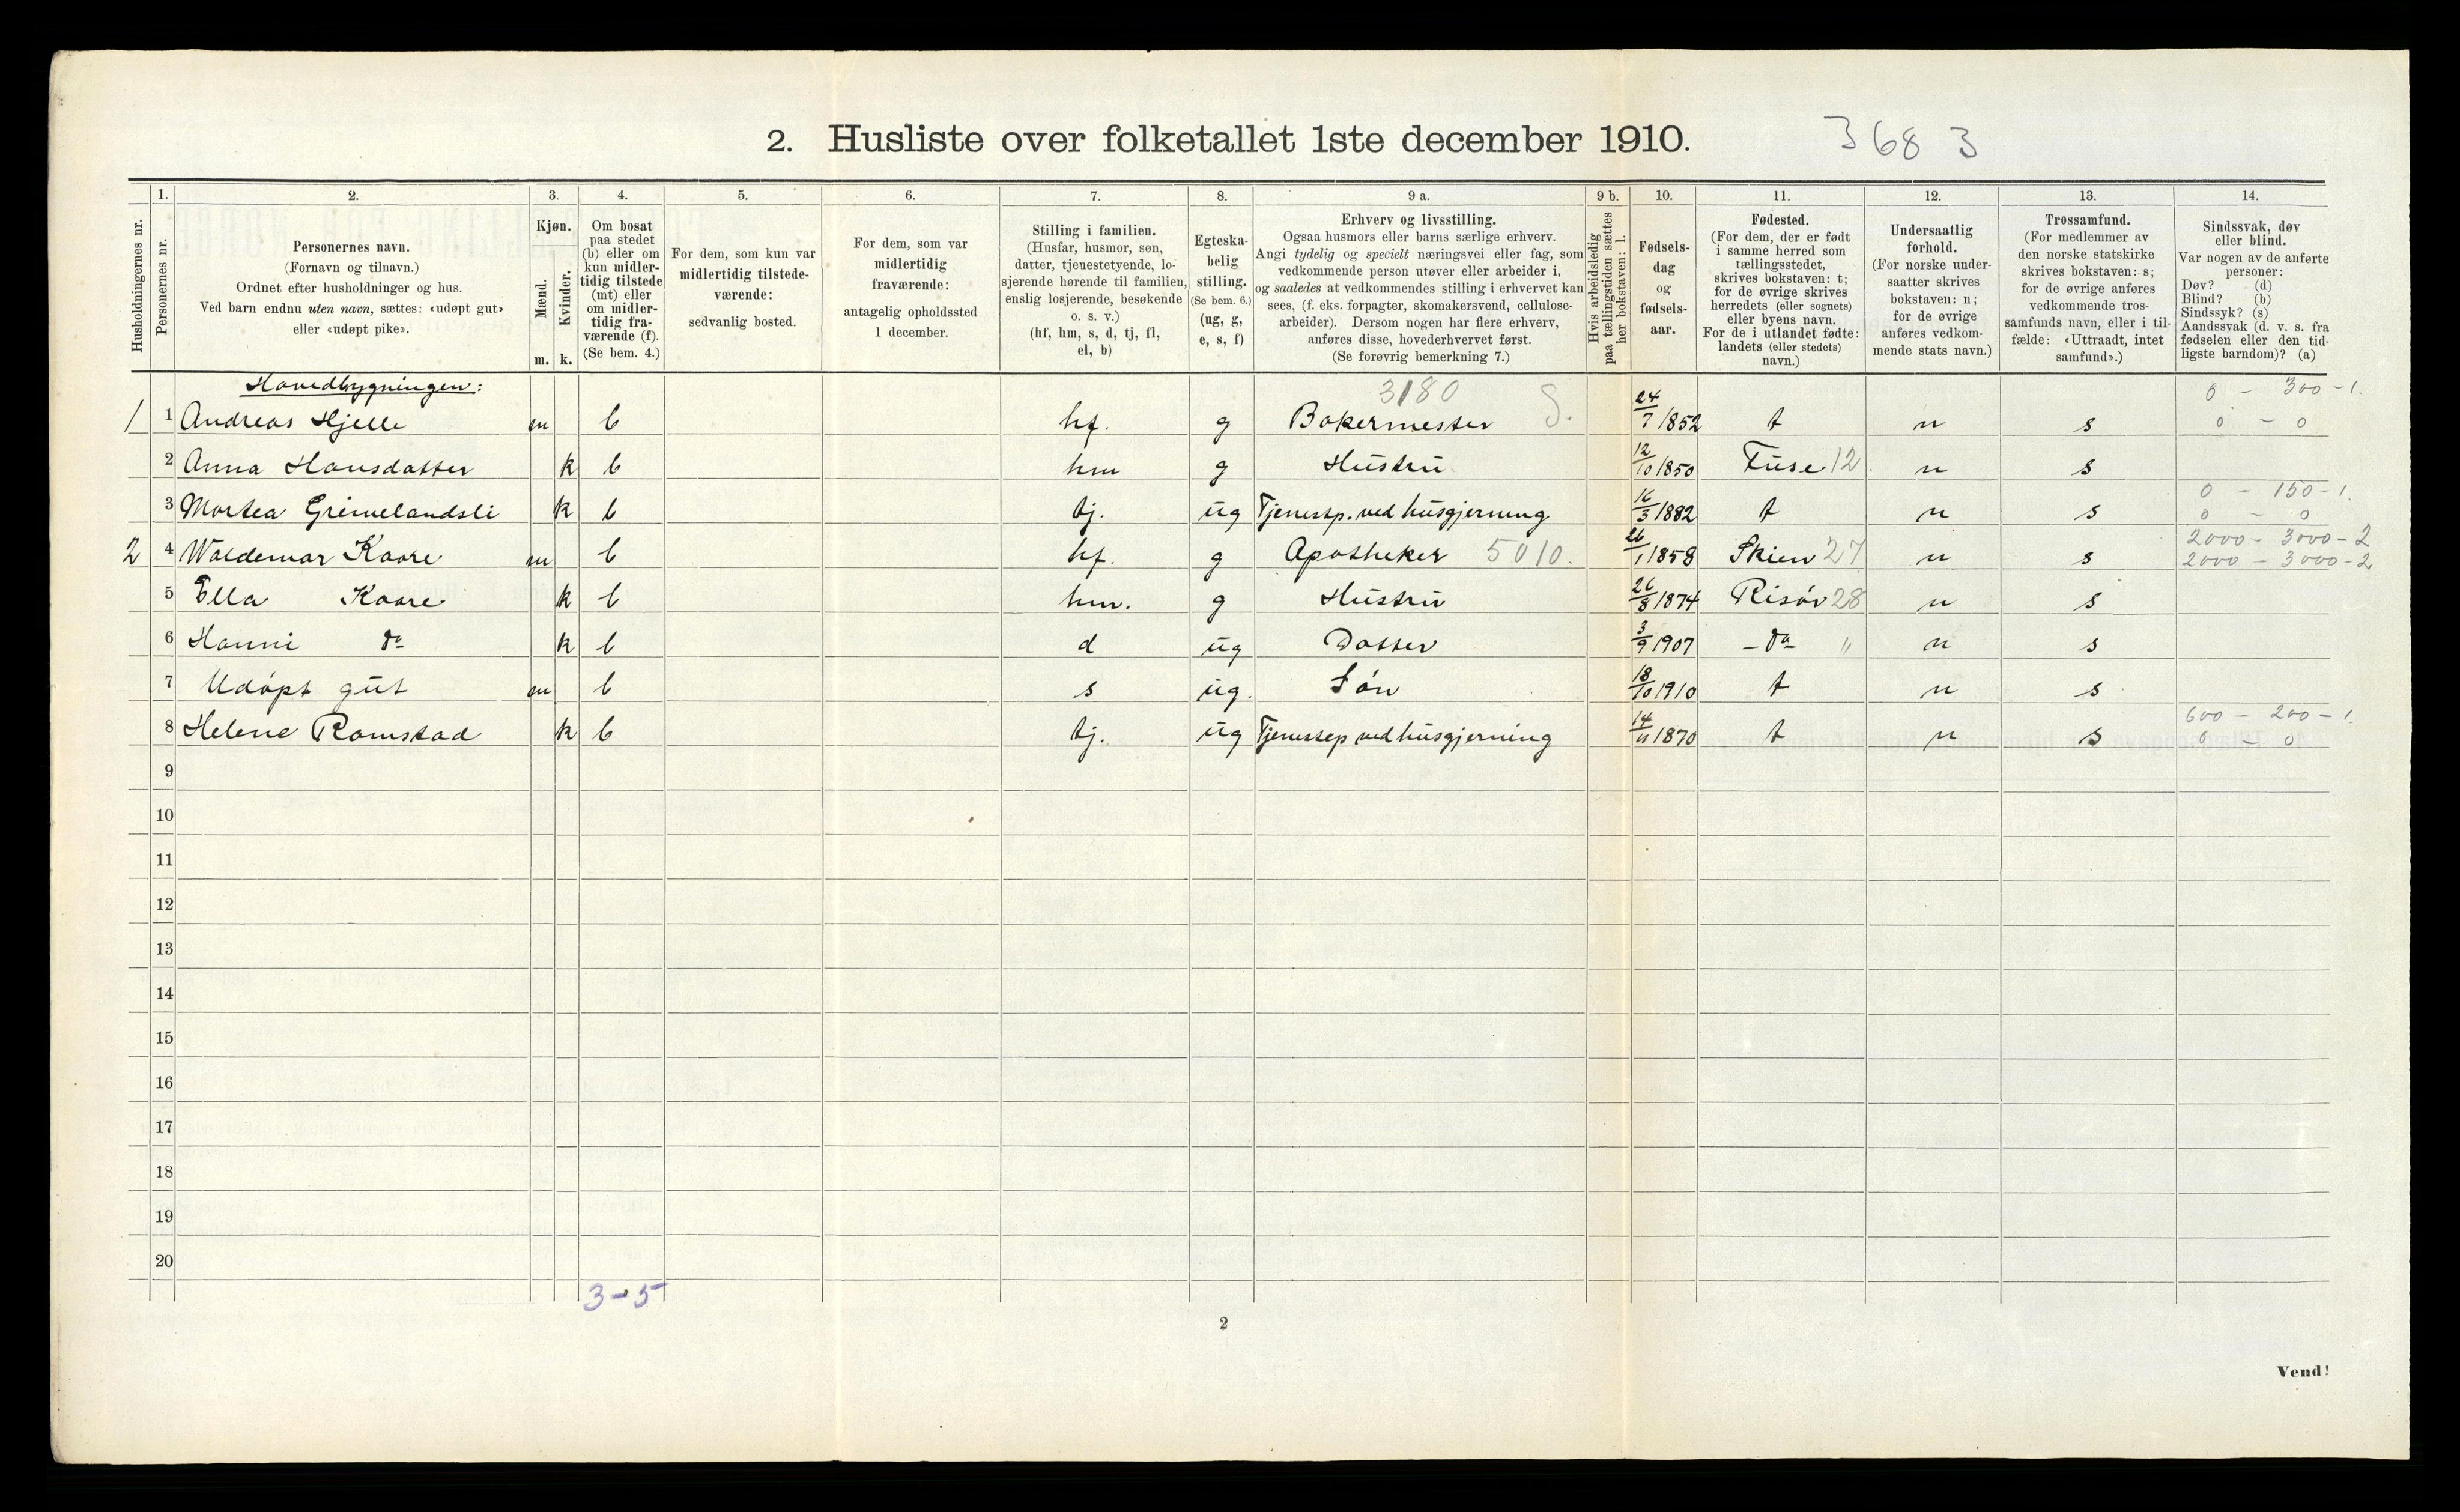 2. Husliste over folketallet 1ste december 1910. 3683
1. 2. 3. 4. 5. 6. 7. 8. 9 a. 9 b. 10. 11. 12. 13. 14.
Husholdningernes nr.
Personernes nr.
Personernes navn.
(Fornavn og tilnavn.)
Ordnet efter husholdninger og hus.
Ved barn endnu uten navn, sættes: «udøpt gut»
eller «udøpt pike».
Kjøn.
Mænd. Kvinder.
m. k.
Om bosat
paa stedet
(b) eller om
kun midler-
tidig tilstede
(mt) eller
om midler-
tidig fra-
værende (f).
(Se bem. 4.)
For dem, som kun var
midlertidig tilstede-
værende:
sedvanlig bosted.
For dem, som var
midlertidig
fraværende:
antagelig opholdssted
1 december.
Stilling i familien.
(Husfar, husmor, søn,
datter, tjenestetyende, lo-
sjerende hørende til familien,
enslig losjerende, besøkende
o. s. v.)
(hf, hm, s, d, tj, fl,
el, b)
Egteska-
belig
stilling.
(Se bem. 6.)
(ug, g,
e, s, f)
Erhverv og livsstilling.
Ogsaa husmors eller barns særlige erhverv.
Angi tydelig og specielt næringsvei eller fag, som
vedkommende person utøver eller arbeider i,
og saaledes at vedkommendes stilling i erhvervet kan
sees, (f. eks. forpagter, skomakersvend, cellulose-
arbeider). Dersom nogen har flere erhverv,
anføres disse, hovederhvervet først.
(Se forøvrig bemerkning 7.)
Hvis arbeidsledig
paa tællingstiden sættes
her bokstaven: l.
Fødsels-
dag
og
fødsels-
aar.
Fødested.
(For dem, der er født
i samme herred som
tællingsstedet,
skrives bokstaven: t;
for de øvrige skrives
herredets (eller sognets)
eller byens navn.
For de i utlandet fødte:
landets (eller stedets)
navn.)
Undersaatlig
forhold.
(For norske under-
saatter skrives
bokstaven: n;
for de øvrige
anføres vedkom-
mende stats navn.)
Trossamfund.
(For medlemmer av
den norske statskirke
skrives bokstaven: s;
for de øvrige anføres
vedkommende tros-
samfunds navn, eller i til-
fælde: «Uttraadt, intet
samfund».)
Sindssvak, døv
eller blind.
Var nogen av de anførte
personer:
Døv? (d)
Blind? (b)
Sindssyk? (s)
Aandssvak (d. v. s. fra
fødselen eller den tid-
ligste barndom)? (a)
Hovedbygningen: 3180 0 - 300 - 1.
1 1 Andreas Hjelle m b hf. g Bakermester S. 24/7 1852 t n s 0 - 0
2 Anna Hansdatter k b hm g Hustru 12/10 1850 Fuse 12 n s
0 - 150 - 1.
3 Martea Grimelandsli k b tj. ug Tjenestp. ved husgjerning 16/3 1882 t n s 0 - 0
2000 - 3000 - 2
2 4 Waldemar Kaare m b hf. g Apotheker 5010. 26/1 1858 Skien 27 n s 2000 - 3000 - 2
5 Ella Kaare k b hm. g Hustru 26/8 1874 Risør 28 n s
6 Hanni do k b d ug Datter 3/9 1907 - do - " n s
7 Udøpt gut m b s ug. Søn 18/10 1910 t n s
600 - 200 - 1.
8 Helene Ramstad k b tj. ug Tjenestep ved husgjerning 14/11 1870 t n s 0 - 0
9
10
11
12
13
14
15
16
17
18
19
20
3-5
2
Vend!